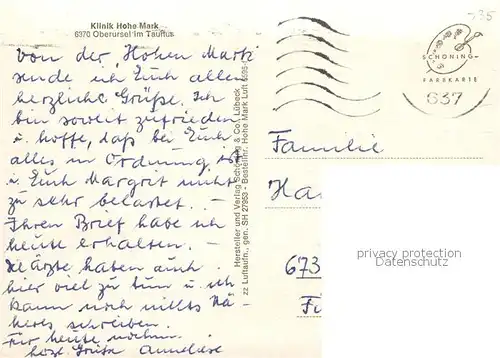 Klinik Hohe Mark
6370 Oberursel im Taunus
Von der „Hohen Mark"
sende ich Euch allen
herzliche Grüße. Ich
bin soweit zufrieden
u. hoffe, daß bei Euch
alles in Ordnung ist
u. Euch Margrit nicht
zu sehr belastet. –
Ihren Brief habe ich
heute erhalten. –
Die Ärzte haben auch
hier viel zu tun u. ich
kann noch nichts Nä-
heres schreiben.
Für heute nochm.
herzl. Grüße Annelise
Hersteller und Verlag Schöning & Co., Lübeck
zz Luftaufn., gen. SH 27983 - Bestellnr. Hohe Mark Luft
SCHÖNING
FARBKARTE
637
Familie
Ha
673
privacy protection
Datenschutz